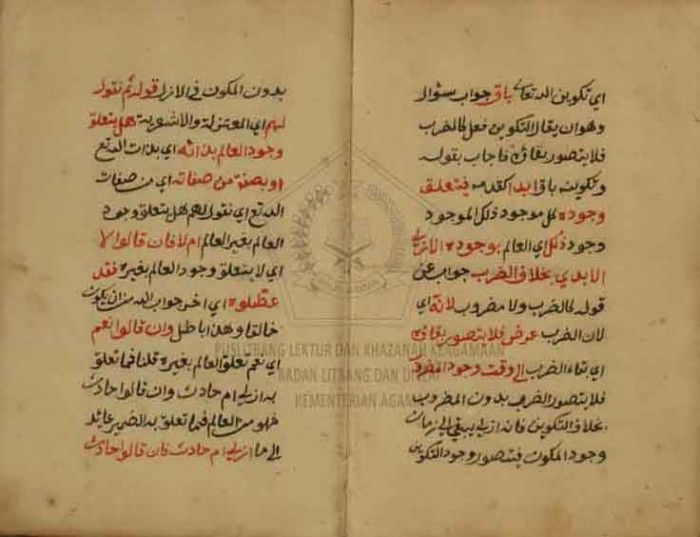 اي تكوين الله تعالى باق جواب سؤال
وهو ان يقال التكوين فعل كالضرب
فلا يتصور بقاؤه فاجاب بقوله
وتكوينه باق ابد القدمه فيتعلق
وجود كل موجود ذلك الموجود
وجود ذلك اي العالم بوجوده الازلي
الابدي بخلاف الضرب جواب عن
قوله كالضرب ولا مضروب لانه اي
لان الضرب عرض فلا يتصور بقاؤه
اي بقاء الضرب الى وقت وجود المضروب
فلا يتصور الضرب بدون المضروب
بخلاف التكوين فانه ازلي يبقى الى زمان
وجود المكون فيتصور وجود التكوين
بدون المكون في الازل قوله ثم نقول
لهم اي المعتزلة والاشعرية هل يتعلق
وجود العالم بذاته اي بذات الله تع
او بصفة من صفاته اي من صفات
الله تع اي نقول لهم هل يتعلق وجود
العالم بغير العالم ام لا فان قالوا لا
اي لا يتعلق وجود العالم بغيره فقد
عطلوه اي اخرجوا الله من ان يكون
خالقا وهذا باطل وان قالوا نعم
اي نعم تعلق العالم بغيره قلنا فما تعلق
به ازلي ام حادث وان قالوا حادث
فهو من العالم فما تعلق به الضمير عائد
الى ما ازلي ام حادث فان قالوا حادث
PUSLITBANG LEKTUR DAN KHAZANAH KEAGAMAAN
BADAN LITBANG DAN DIKLAT
KEMENTERIAN AGAMA